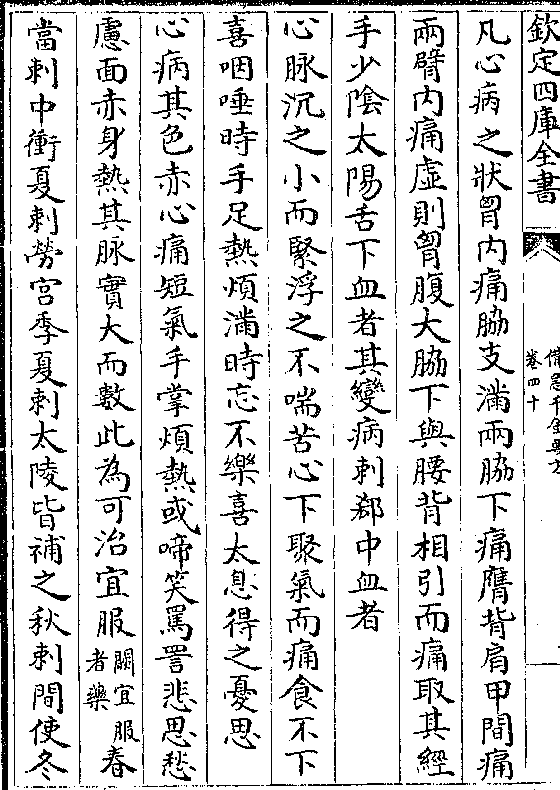 欽定四庫全書
備急千金要方
卷四十
凡心病之狀胷内痛脇支滿兩脇下痛膺背肩甲間痛
兩臂内痛虚則胷腹大脇下與腰背相引而痛取其經
手少陰太陽舌下血者其變病刺郄中血者
心脉沉之小而緊浮之不喘苦心下聚氣而痛食不下
喜咽唾時手足熱煩滿時忘不樂喜太息得之憂思
心病其色赤心痛短氣手掌煩熱或啼笑罵詈悲思愁
慮面赤身熱其脉實大而數此為可治宜服闕宜服者藥春
當刺中衝夏刺勞宫季夏刺太陵皆補之秋刺間使冬